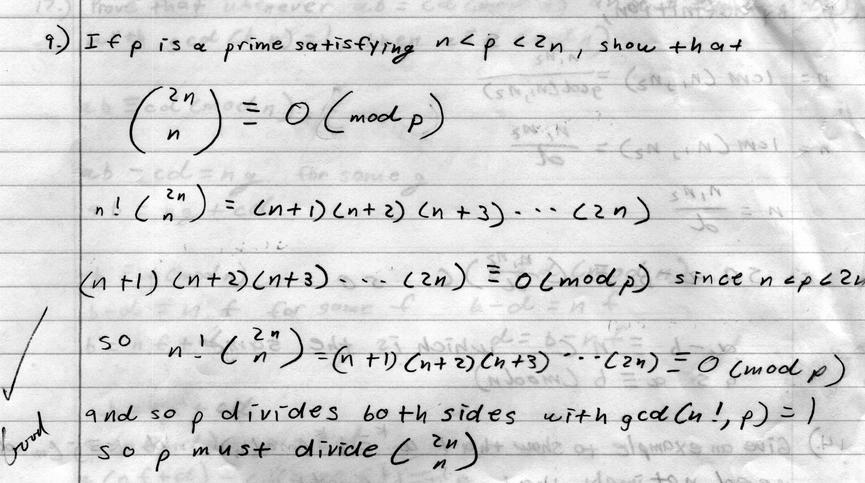 9.) If p is a prime satisfying n < p < 2n, show that
(2n n) ≡ 0 (mod p)
n! (2n n) = (n+1)(n+2)(n+3)···(2n)
(n+1)(n+2)(n+3)···(2n) ≡ 0 (mod p) since n < p < 2n
so n! (2n n) = (n+1)(n+2)(n+3)···(2n) ≡ 0 (mod p)
and so p divides both sides with gcd(n!, p) = 1
so p must divide (2n n)
Good